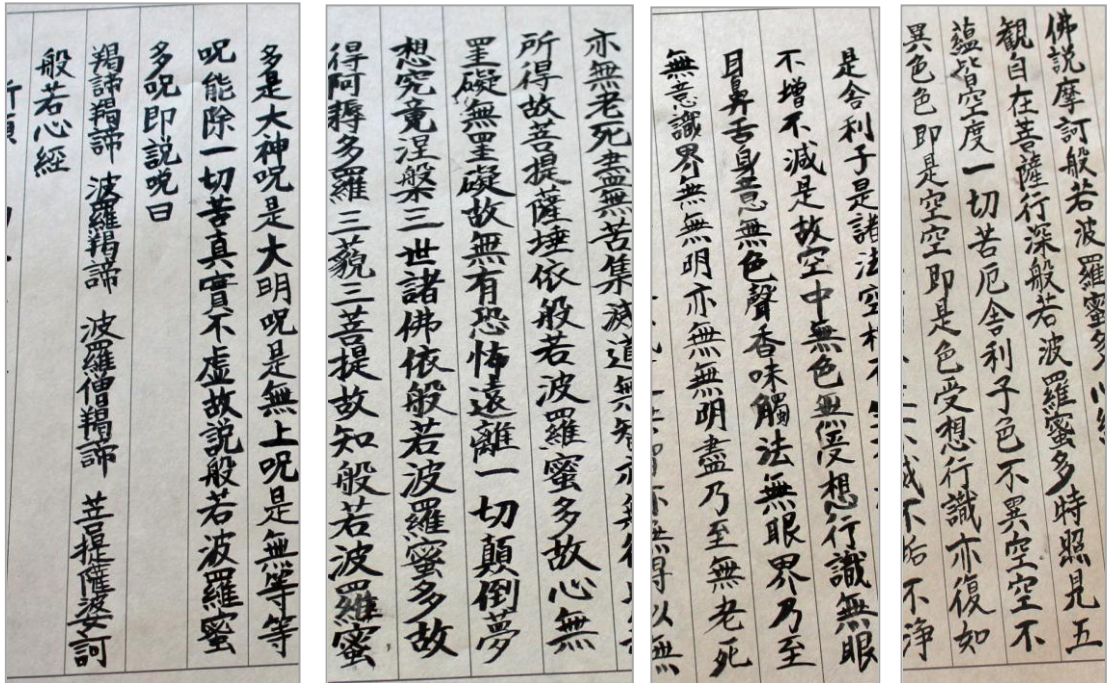 佛説摩訶般若波羅蜜多心経
観自在菩薩行深般若波羅蜜多時照見五
蘊皆空度一切苦厄舎利子色不異空空不
異色色即是空空即是色受想行識亦復如
滅不垢不浄
是舎利子是諸法空相不
不增不減是故空中無色無受想行識無眼
目鼻舌身意無色聲香味觸法無眼界乃至
無意識界無無明亦無無明盡乃至無老死
亦無得以無
亦無老死盡無苦集滅道無智亦無得以
所得故菩提薩埵依般若波羅蜜多故心無
罣礙無罣礙故無有恐怖遠離一切顛倒夢
想究竟涅槃三世諸佛依般若波羅蜜多故
得阿耨多羅三藐三菩提故知般若波羅蜜
多是大神呪是大明呪是無上呪是無等等
呪能除一切苦真實不虚故説般若波羅蜜
多呪即説呪曰
羯諦羯諦 波羅羯諦 波羅僧羯諦 菩提薩婆訶
般若心經